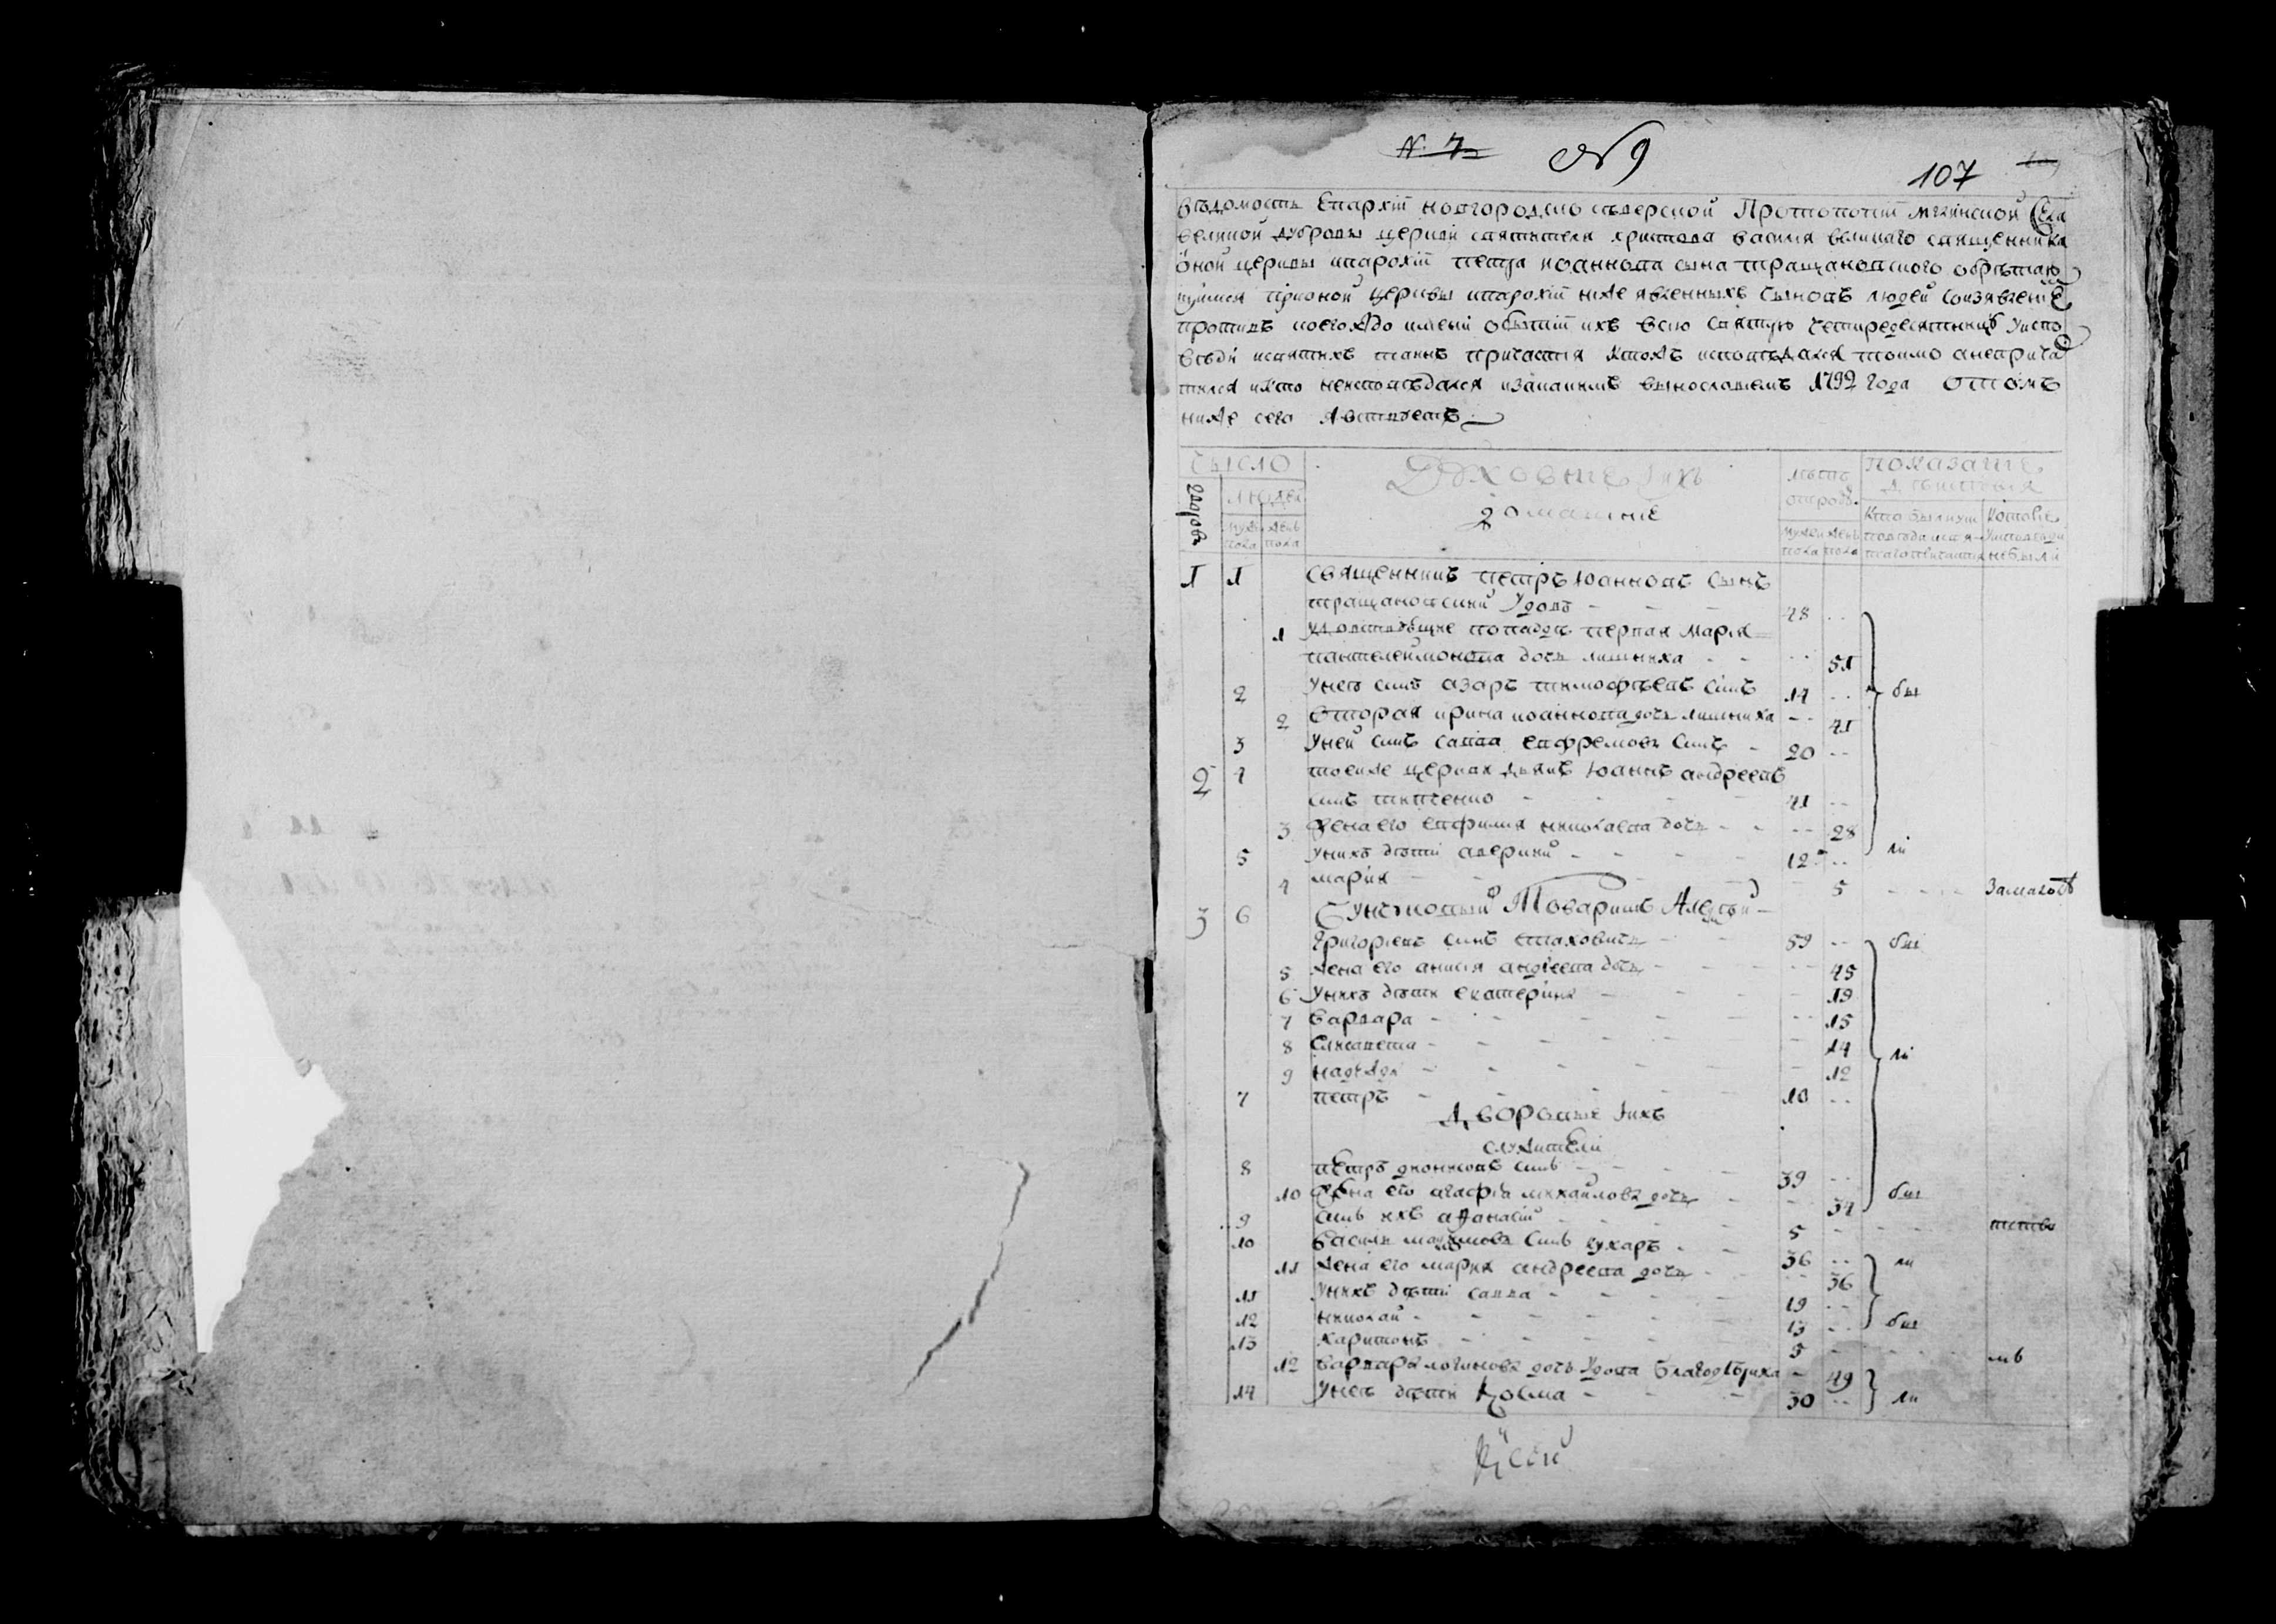 N. 7 № 9
107
Вѣдомость Епархіи Новгородско сѣверской Протопопіи Мглинской Села
великой дубровы церкви святителя христова василія великаго священника
оной церкви и парохіи петра иоаннова сына тращаковского обрѣтаю
щимся при оной церкви и парохіи ниже явленныхъ чыновъ людей со изявленіе
противъ коегождо имени о бытіи ихъ всю святую четиредесятницу у испо
вѣди и святихъ таинъ причастія и хтожъ исповѣдался токмо а неприча
тился и хто не исповѣдался и за какимъ вынословиемъ 1792 года о томъ
ниже сего явствуетъ
Чысло
дворовъ
людей
мужеска пола
женска пола
Духовние и ихъ
домашние
лѣтъ
отрода
мужеска пола
женска пола
показание
дѣйствия
Кто были у исповѣди и святаго причастия
Которие у исповѣди не были
1 1 Священникъ петръ Иоанновъ сынъ
тращаковский удовъ - - 48 ..
1 удовствующие попадѣ первая Мария
пантелеймонова дочь - - .. 51
2 у нее синъ азаръ тимофѣевъ синъ 14 .. бы
2 Вторая ирина иоаннова дочь - - 41
3 у ней синъ савва ефремовъ синъ - 20 ..
2 4 тоеиже церкви дьякъ Иоаннъ андреевъ
синъ - - 41 ..
3 жена его евфимия николаева дочь - - .. 28
5 у нихъ дѣти аверкий - - - 12 .. ли
4 мария - - 5 - - - За малолѣ
3 6 Бунчуковый Товаришъ Алексѣй
григориевъ синъ - - 59 .. бы
5 жена его анисия андреева дочь - - .. 45
6 у нихъ дѣти екатерина - - 19
7 варвара - - - - - .. 15
8 Елисавета - - - - - 14
9 надежда - - - - - 12 ли
7 петръ - - - - - 10 ..
дворовые ихъ
служители
8 петръ дионисовъ синъ - - - 39 ..
10 жена его агафия михаилова дочь - - 34 бы
9 синъ ихъ афанасий - - - 5 - - - тство
10 василь синъ кухаръ - - 36 .. ли
11 жена его мария андреева дочь - .. 36
11 у нихъ дѣти савва - - - 19 ..
12 николай - - - - 13 .. бы
13 харитонъ - - - - 5 - - - мъ
12 варвара логинова дочь удова - 49
14 у нея дѣти Козма - - - 30 .. ли